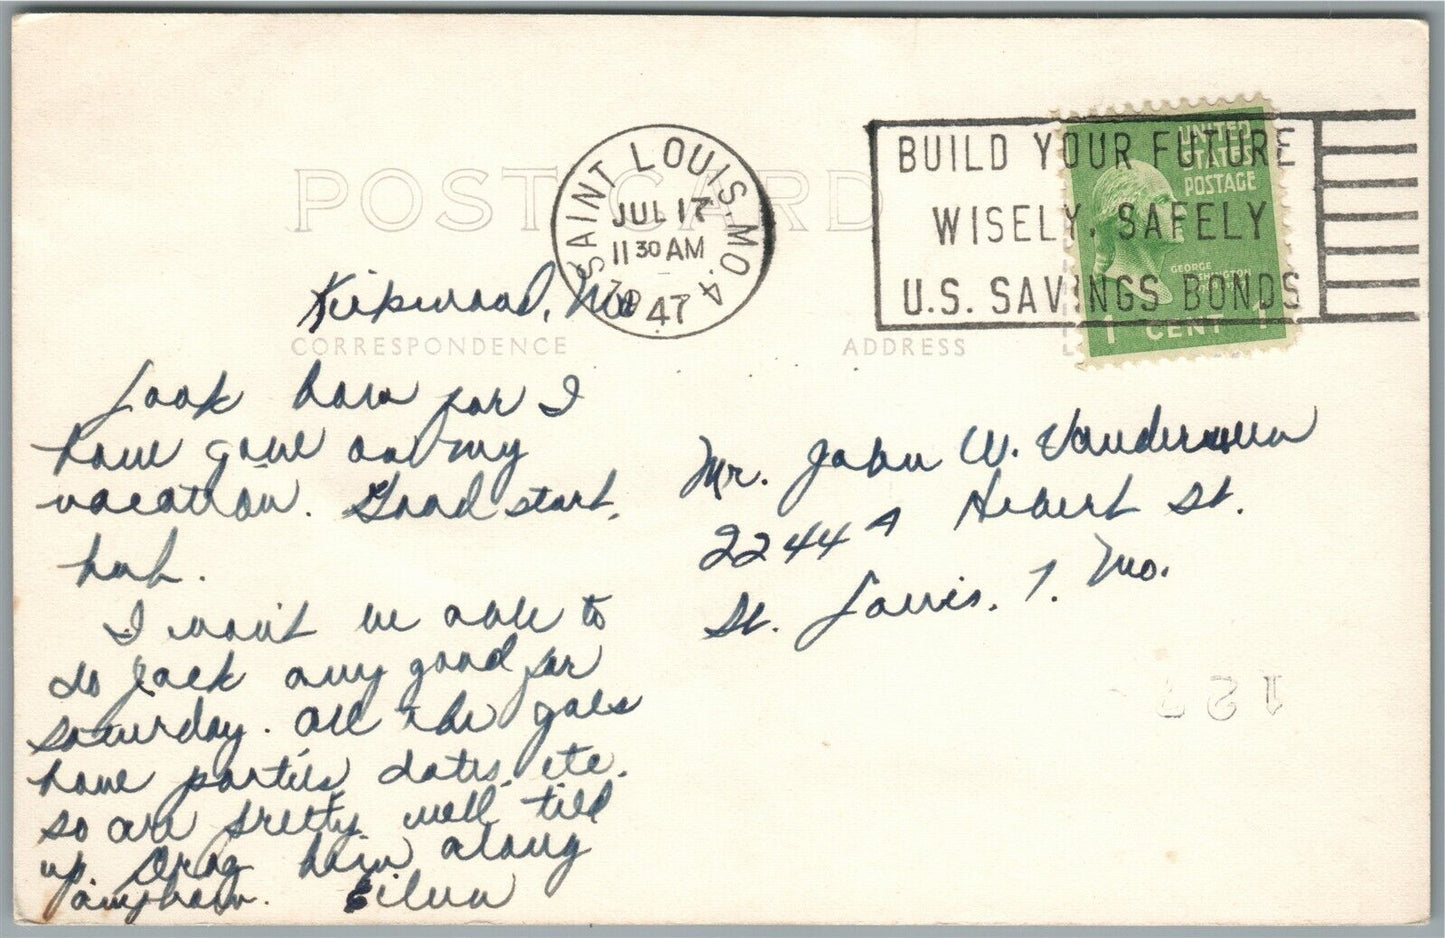 POST CARD
SAINT LOUIS, MO. 4
JUL 17
11 30 AM
1947
BUILD YOUR FUTURE
WISELY, SAFELY
U.S. SAVINGS BONDS
UNITED
STATES
POSTAGE
GEORGE
WASHINGTON
1 CENT 1
Kirkwood, Mo
CORRESPONDENCE
ADDRESS
Look how far I
have gone on my
vacation. Good start,
huh.
I won't be able to
do Jack any good for
Saturday. All the gals
have parties, dates, etc.
so are pretty well tied
up. Drag him along
anyhow. Eileen
Mr. John W.
2244 A Hebert St.
St. Louis, 7. Mo.
127